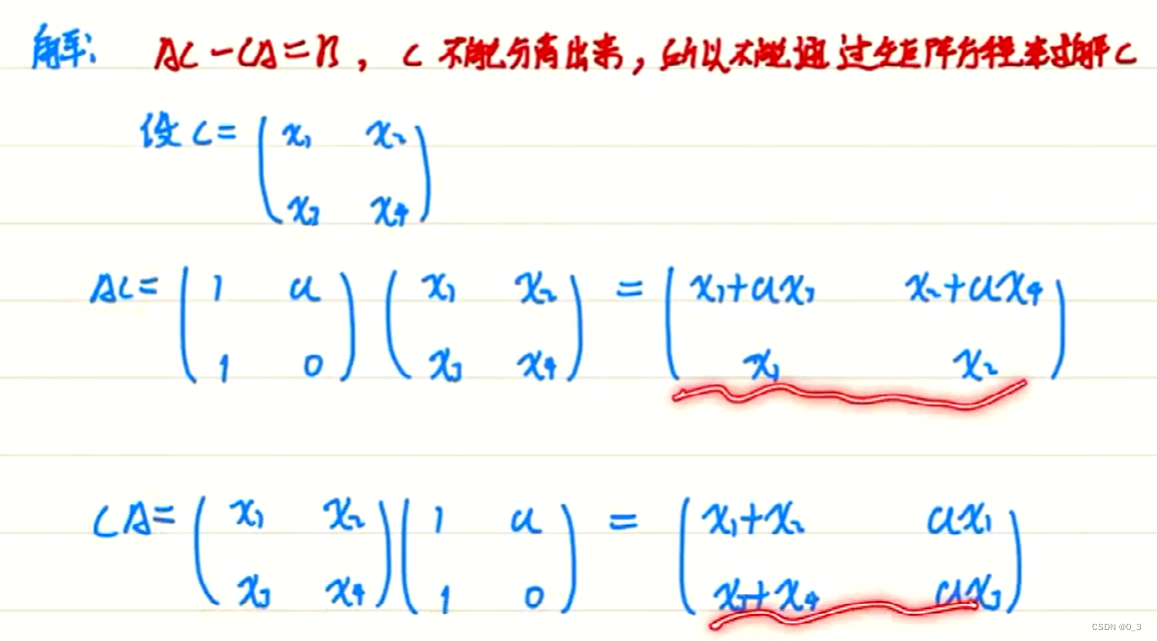 解: AC-CA=B, C 不能分离出来,所以不能通过矩阵方程来求解C
设 C= ( x₁ x₂
x₃ x₄ )
AC= ( 1 a
1 0 ) ( x₁ x₂
x₃ x₄ ) = ( x₁+ax₃ x₂+ax₄
x₁ x₂ )
CA= ( x₁ x₂
x₃ x₄ ) ( 1 a
1 0 ) = ( x₁+x₂ ax₁
x₃+x₄ ax₃ )
CSDN @0_3